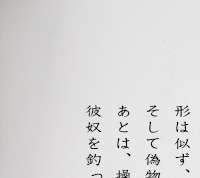 形は似ず、
そして偽物
あとは、操
彼奴を釣っ